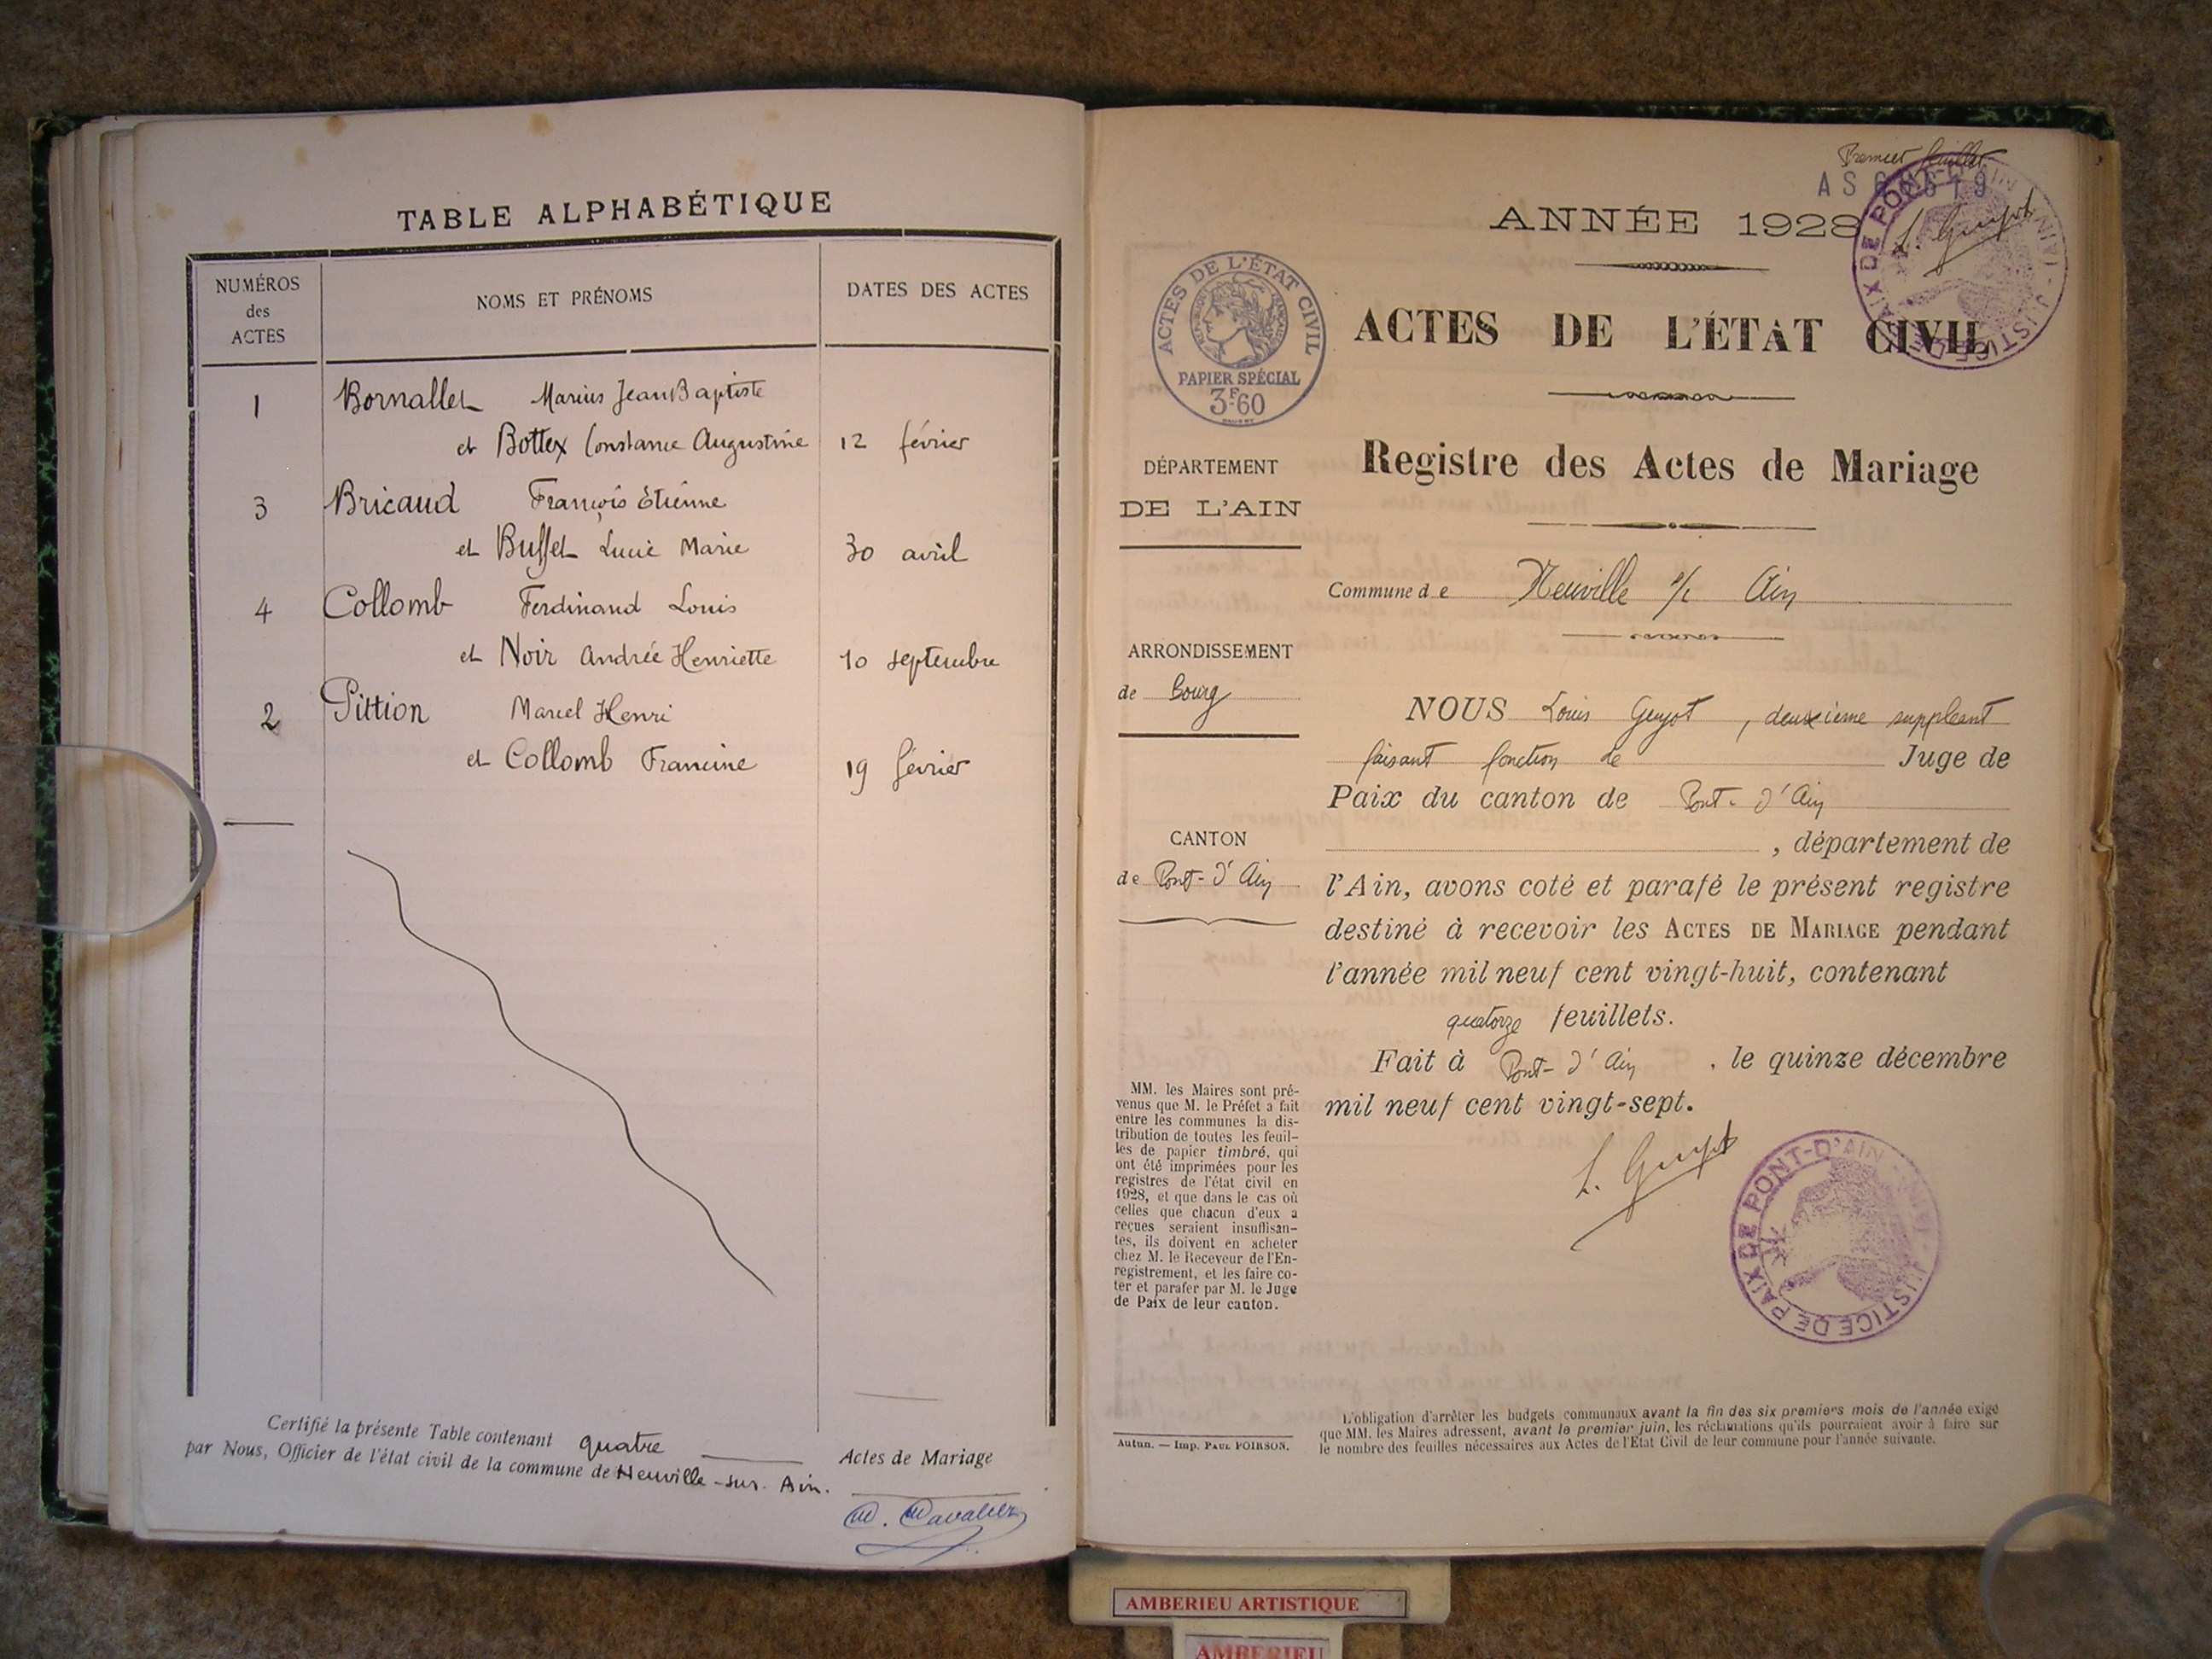 TABLE ALPHABÉTIQUE
NUMÉROS des ACTES
NOMS ET PRÉNOMS
DATES DES ACTES
1 Bornallet Marius Jean Baptiste
et Bottex Constance Augustine 12 février
3 Bricaud François Etienne
et Buffet Lucie Marie 30 avril
4 Collomb Ferdinand Louis
et Noir Andrée Henriette 10 septembre
2 Pittion Marcel Henri
et Collomb Francine 19 février
Certifié la présente Table contenant quatre Actes de Mariage
par Nous, Officier de l'état civil de la commune de Neuville-sur-Ain.
Premier feuillet
ANNÉE 1928
L. Guyot
JUSTICE DE PAIX DE PONT-D'AIN (AIN)
ACTES DE L'ÉTAT CIVIL
PAPIER SPÉCIAL
3F60
ACTES DE L'ÉTAT CIVIL
Registre des Actes de Mariage
DÉPARTEMENT
DE L'AIN
Commune de Neuville s/ Ain
ARRONDISSEMENT
de Bourg
CANTON
de Pont-d'Ain
NOUS Louis Guyot, deuxième suppléant
faisant fonction de Juge de
Paix du canton de Pont-d'Ain
, département de
l'Ain, avons coté et parafé le présent registre
destiné à recevoir les ACTES DE MARIAGE pendant
l'année mil neuf cent vingt-huit, contenant
quatorze feuillets.
Fait à Pont-d'Ain, le quinze décembre
mil neuf cent vingt-sept.
L. Guyot
JUSTICE DE PAIX DE PONT-D'AIN (AIN)
MM. les Maires sont pré-
venus que M. le Préfet a fait
entre les communes la dis-
tribution de toutes les feuil-
les de papier timbré, qui
ont été imprimées pour les
registres de l'état civil en
1928, et que dans le cas où
celles que chacun d'eux a
reçues seraient insuffisan-
tes, ils doivent en acheter
chez M. le Receveur de l'En-
registrement, et les faire co-
ter et parafer par M. le Juge
de Paix de leur canton.
Autun. — Imp. PAUL POIRSON.
L'obligation d'arrêter les budgets communaux avant la fin des six premiers mois de l'année exige
que MM. les Maires adressent, avant le premier juin, les réclamations qu'ils pourraient avoir à faire sur
le nombre des feuilles nécessaires aux Actes de l'Etat Civil de leur commune pour l'année suivante.
AMBERIEU ARTISTIQUE
AMBERIEU